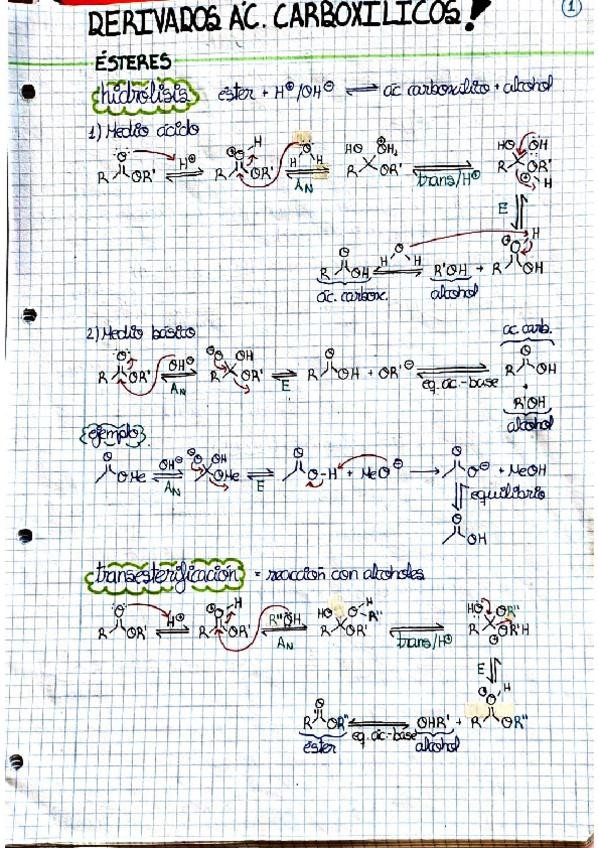 DERIVADOS ÁC. CARBOXÍLICOS! 1
ÉSTERES
hidrólisis ester + H⊕/OH⊖ ⇌ ác carboxílico + alcohol
1) Medio ácido
R O OR' H⊕ ⇌ R O H OR' H O H ⇌ AN HO OH2 R OR' ⇌ trans/H⊕ HO OH R OR' H
E
R O OH H O H ⇌ R'OH + R O H OH
ác. carbox. alcohol
2) Medio básico ac carb.
R O OR' OH⊖ ⇌ AN R O OH OR' ⇌ E R O OH + OR'⊖ ⇌ eq. ac.-base R O OH
+
R'OH
alcohol
ejemplo
O OMe OH⊖ ⇌ AN O OH OMe ⇌ E O O-H + MeO⊖ → O O⊖ + MeOH
equilibrio
O OH
transesterificación = reacción con alcoholes
R O OR' H⊕ ⇌ R O H OR' R''OH ⇌ AN HO O H R'' R OR' ⇌ trans/H⊕ HO OR'' R OR'H
E
R O OR'' ⇌ eq. ác-base OHR' + R O H OR''
éster alcohol